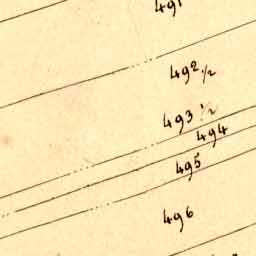 491
492 1/2
493 1/2
494
495
496